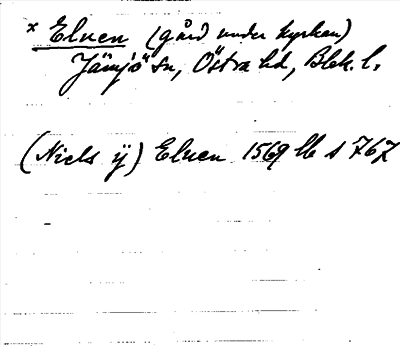 * Elven (gård under kyrkan)
Jämjö sn, Östra hd, Blek. l.
(Niels ÿ) Elven 1569 lb s 767